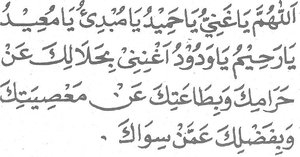 اَللّٰهُمَّ يَا غَنِيُّ يَا حَمِيْدُ يَا مُبْدِئُ يَا مُعِيْدُ
يَا رَحِيْمُ يَا وَدُوْدُ اَغْنِنِيْ بِحَلَالِكَ عَنْ
حَرَامِكَ وَبِطَاعَتِكَ عَنْ مَعْصِيَتِكَ
وَبِفَضْلِكَ عَمَّنْ سِوَاكَ .